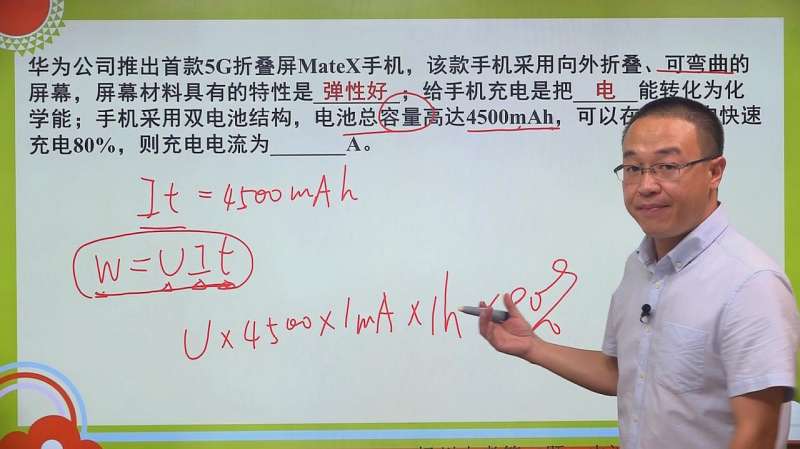 华为公司推出首款5G折叠屏MateX手机，该款手机采用向外折叠、可弯曲的
屏幕，屏幕材料具有的特性是 弹性好 ；给手机充电是把 电 能转化为化
学能；手机采用双电池结构，电池总容量高达4500mAh，可以在 快速
充电80%，则充电电流为______A。
It = 4500mAh
W = UIt
U × 4500 × 1mA × 1h × 80%